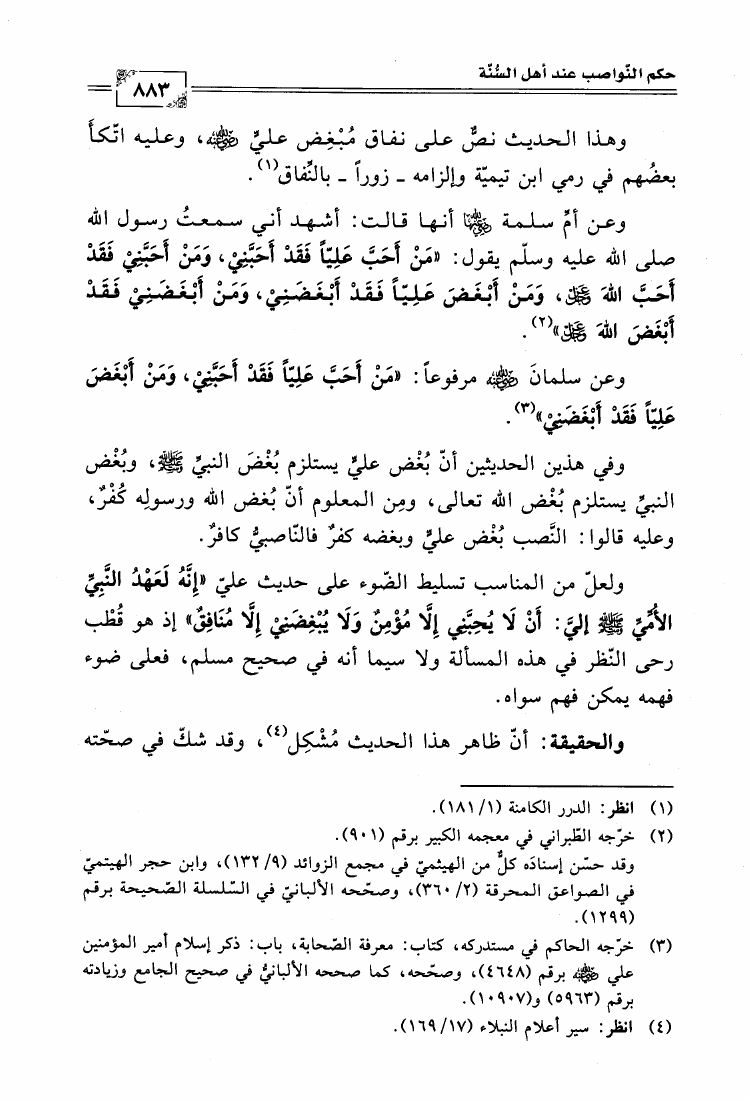 حكم النّواصب عند أهل السُّنّة
٨٨٣
وهذا الحديث نصٌّ على نفاق مُبْغِض عليٍّ رضي الله عنه، وعليه اتّكأَ
بعضُهم في رمي ابن تيميّة وإلزامه ـ زوراً ـ بالنِّفاق(١).
وعن أمِّ سلمة رضي الله عنها أنها قالت: أشهد أني سمعتُ رسول الله
صلى الله عليه وسلّم يقول: «مَنْ أَحَبَّ عَلِيّاً فَقَدْ أَحَبَّنِيْ، وَمَنْ أَحَبَّنِيْ فَقَدْ
أَحَبَّ اللهَ ﷻ، وَمَنْ أَبْغَضَ عَلِيّاً فَقَدْ أَبْغَضَنِيْ، وَمَنْ أَبْغَضَنِيْ فَقَدْ
أَبْغَضَ اللهَ ﷻ»(٢).
وعن سلمانَ رضي الله عنه مرفوعاً: «مَنْ أَحَبَّ عَلِيّاً فَقَدْ أَحَبَّنِيْ، وَمَنْ أَبْغَضَ
عَلِيّاً فَقَدْ أَبْغَضَنِيْ»(٣).
وفي هذين الحديثين أنّ بُغْض عليٍّ يستلزم بُغْضَ النبيِّ ﷺ، وبُغْض
النبيِّ يستلزم بُغْض الله تعالى، ومِن المعلوم أنّ بُغض الله ورسولِه كُفْرٌ،
وعليه قالوا: النَّصب بُغْض عليٍّ وبغضه كفرٌ فالنّاصبيُّ كافرٌ.
ولعلّ من المناسب تسليط الضّوء على حديث عليّ «إِنَّهُ لَعَهْدُ النَّبِيِّ
الأُمِّيِّ ﷺ إليَّ: أَنْ لَا يُحِبَّنِي إِلَّا مُؤْمِنٌ وَلَا يُبْغِضَنِيْ إِلَّا مُنَافِقٌ» إذ هو قُطْب
رحى النّظر في هذه المسألة ولا سيما أنه في صحيح مسلم، فعلى ضوء
فهمه يمكن فهم سواه.
والحقيقة: أنّ ظاهر هذا الحديث مُشْكِل(٤)، وقد شكّ في صحّته
(١) انظر: الدرر الكامنة (١/ ١٨١).
(٢) خرّجه الطّبراني في معجمه الكبير برقم (٩٠١).
وقد حسّن إسنادَه كلٌّ من الهيثميّ في مجمع الزوائد (٩/ ١٣٢)، وابن حجر الهيتميّ
في الصواعق المحرقة (٢/ ٣٦٠)، وصحّحه الألبانيّ في السّلسلة الصّحيحة برقم
(١٢٩٩).
(٣) خرّجه الحاكم في مستدركه، كتاب: معرفة الصّحابة، باب: ذكر إسلام أمير المؤمنين
علي رضي الله عنه برقم (٤٦٤٨)، وصحّحه، كما صححه الألبانيُّ في صحيح الجامع وزيادته
برقم (٥٩٦٣) و(١٠٩٠٧).
(٤) انظر: سير أعلام النبلاء (١٧/ ١٦٩).